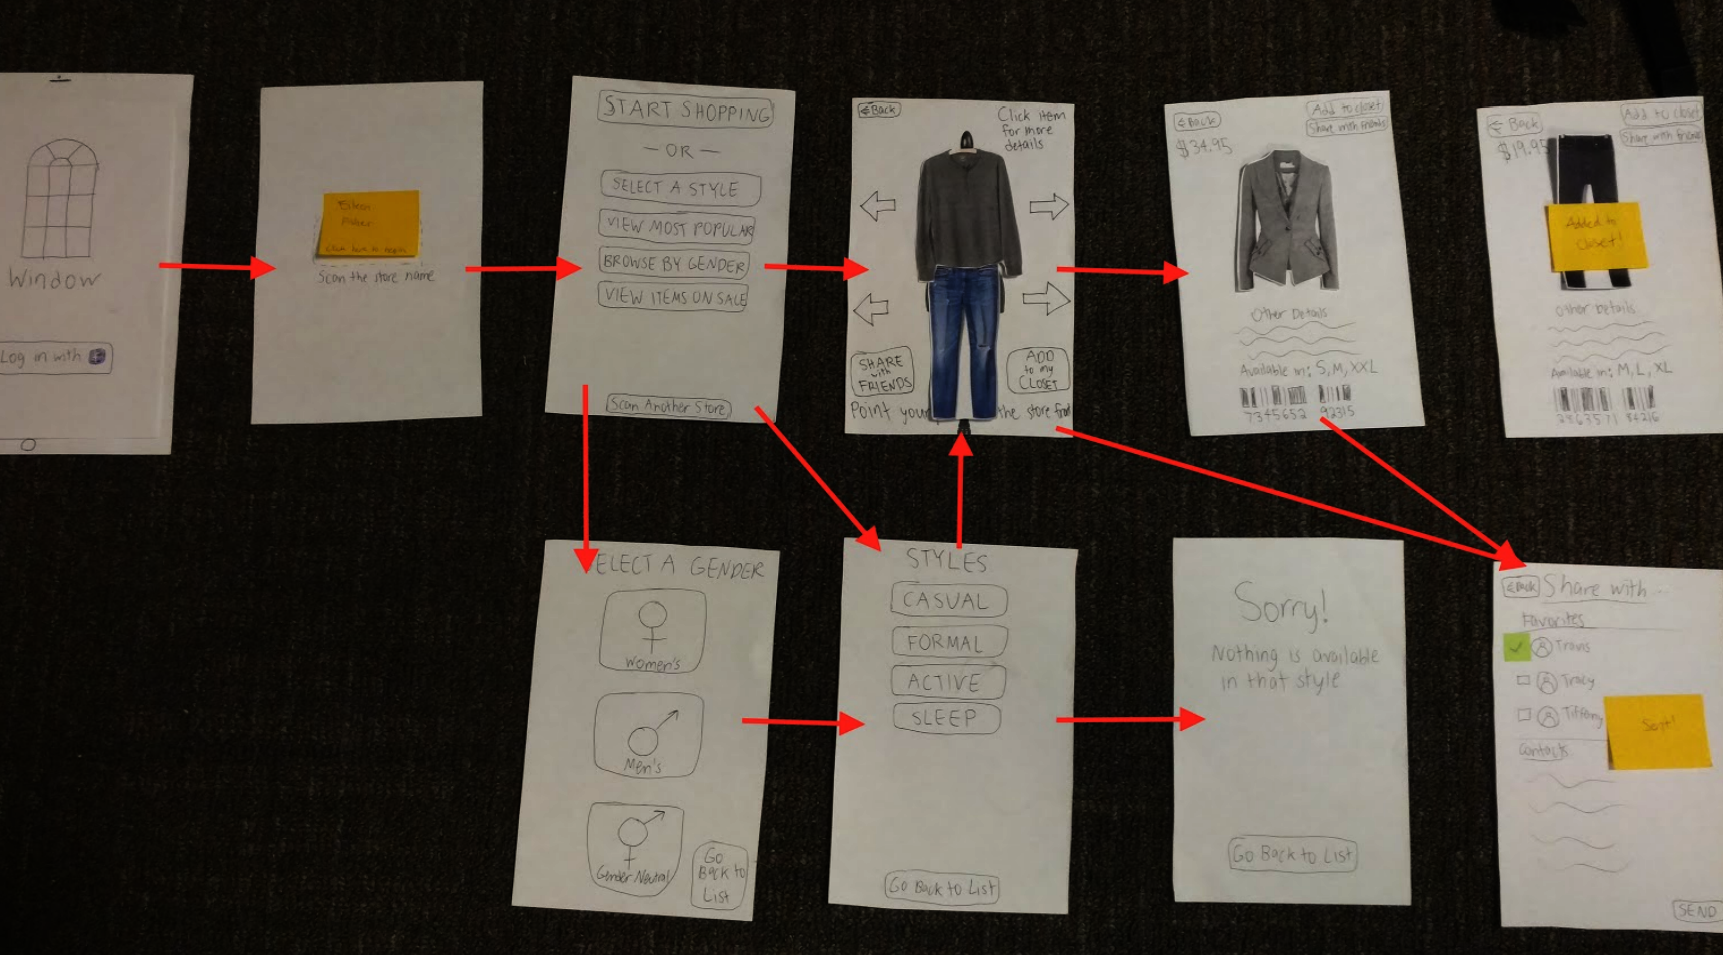 Window
Log in with
Eileen
Fisher
Scan the store name
START SHOPPING
— OR —
SELECT A STYLE
VIEW MOST POPULAR
BROWSE BY GENDER
VIEW ITEMS ON SALE
Scan Another Store
← Back
Click item
for more
details
SHARE
with
FRIENDS
ADD
to my
CLOSET
Point your
the store front
← Back
Add to closet
Share with friends
$34.95
Other Details
Available in: S, M, XXL
7345652 92315
← Back
Add to closet
Share with friends
$19.95
Added to
Closet!
Other Details
Available in: M, L, XL
SELECT A GENDER
Women's
Men's
Gender Neutral
Go
Back to
List
STYLES
CASUAL
FORMAL
ACTIVE
SLEEP
Go Back to List
Sorry!
Nothing is available
in that style
Go Back to List
← Back
Share with ...
Favorites
Travis
Tracy
Tiffany
Sent!
Contacts
SEND